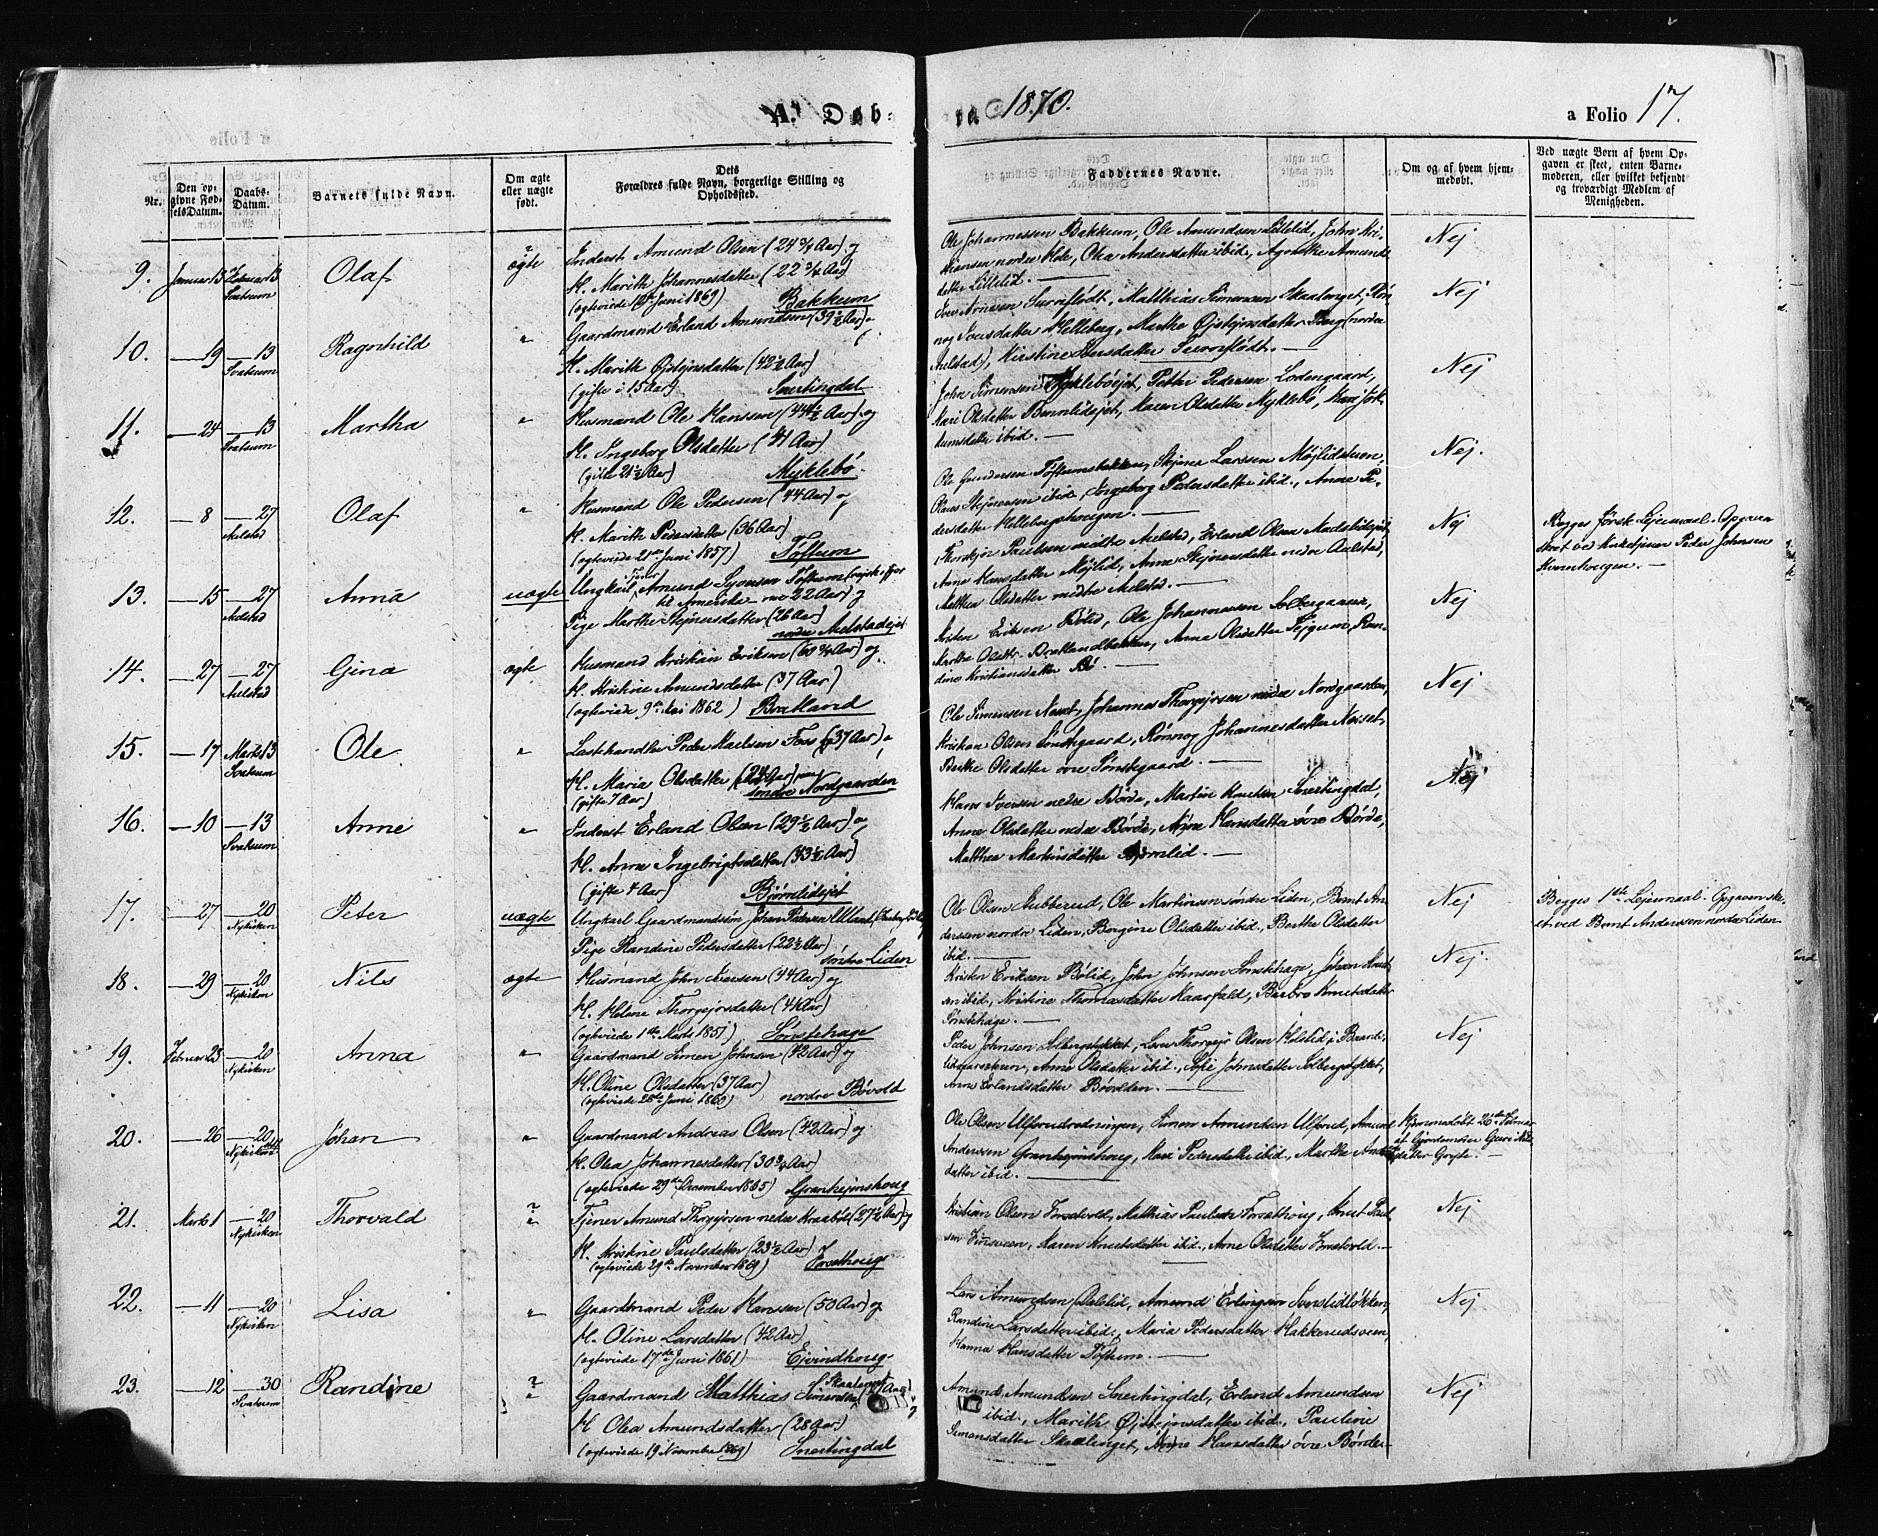 A. Døb-
te 1870.
a Folio 17.
Nr.
Den op-
givne Fød-
selsDatum.
Daabs-
Datum.
Barnets fulde Navn.
Om ægte
eller uægte
født.
Dets
Forældres fulde Navn, borgerlige Stilling og
Opholdssted.
Faddernes Navne.
Om og af hvem hjem-
medøbt.
Ved uægte Børn af hvem Op-
gaven er skeet, enten Barne-
moderen, eller hvilket bekjendt
og troværdigt Medlem af
Menigheden.
9. Januar 15 Februar 13 Olaf ægte Inderst Amund Olsen (24 3/4 Aar) og
Svatsum
K. Marith Johannesdatter (22 3/4 Aar)
(ægteviede Juni 1869) Bakkum
Ole Johannessen Bakkum, Ole Amundsen Lillelid, John Kri-
stiansen nordre Hole, Olea Andersdatter ibid, Agnethe Amunds-
datter Lillelid. —
Nej
10. — 19 — 13 Ragnhild " Gaardmand Erland Amundsen (39 1/2 Aar) og
Svatsum
K. Marith Øistejnsdatter (42 1/2 Aar)
(gifte i 15 Aar) Snertingdal
Iver Arnesen Surnflødt, Matthias Simensen Skaalenget, Røn-
nog Iversdatter Helleberg, Marthe Øistejnsdatter Berg (nordre
Aulstad), Kirstine Iversdatter Surnflødt. —
Nej
11. — 24 — 13 Martha " Husmand Ole Hanssen (44 1/2 Aar) og
Svatsum
K. Ingeborg Olsdatter (41 Aar)
(gifte 21 1/2 Aar) Myklebö.
John Simensen Myklebøejet, Petter Pedersen Lodengaard,
Mari Olsdatter Bønnlidejet, Maren Olsdatter Myklebö, Kari
datter ibid. —
Nej
12. — 8 — 27 Olaf " Husmand Ole Pedersen (44 Aar) og
Aulstad
K. Marith Pedersdatter (36 Aar)
(ægteviede 21de Juni 1857) Töftum
Ole Gundersen Töftumsbakken, Stejner Larssen Möjlidstuen,
Claus Stejnersen ibid, Ingeborg Pedersdatter ibid., Anne Pe-
dersdatter Hellebergshougen. —
Nej.
13. — 15 — 27 Anna uægte Ungkarl Amund Syversen Töftum (rejste ifjor
Aulstad
til Amerika 22 Aar) og
Pige Marthe Stejnersdatter (26 Aar)
nordre Aulstadejet
Thordstejn Paulsen midtre Aulstad, Erland Olsen Madslidejet,
Anne Hansdatter Möjlid, Anne Stejnersdatter nedre Aulstad,
Matthea Olsdatter midtre Aulstad. —
Nej
Begges første Lejermaal. Opgaven
skeet ved Kirketjener Peder Johnsen
Kvernhougen. —
14. — 27 — 27 Gina ægte Husmand Kristian Eriksen (60 3/4 Aar) og
Aulstad
K. Kristine Amundsdatter (37 Aar)
(ægteviede 9de Mai 1862) Bratland
Kristen Eriksen Bölid, Ole Johannessen Solbergaaen,
Marthe Olsdtr. Bratlandbakken, Anne Olsdatter Sejgum, Ran-
dine Kristiansdatter Bö. —
Nej
15. — 17 Marts 13 Ole " Lasthandler Peder Maelsen Foss (37 Aar) og
Svatsum
K. Maria Olsdatter (24 Aar)
(gifte 7 Aar) søndre Nordgaarden
Ole Simensen Næset, Johannes Thorgejrsen nedre Nordgaarden,
Kristian Olsen Sønstegaard, Rönnog Johannesdatter Næsset,
Berthe Olsdatter øvre Sønstegaard. —
Nej
16. — 10 — 13 Anne " Inderst Erland Olsen (29 1/2 Aar) og
Svatsum
K. Anne Ingebrigtsdatter (33 1/2 Aar)
(gifte 4 Aar) Bjørnlidejet
Hans Iversen nedre Börde, Martin Knutsen Snertingdal,
Anne Olsdatter nedre Börde, Anne Hansdatter øvre Börde,
Matthea Martinsdatter Bjørnlid. —
Nej
17. — 27 — 20 Peter uægte Ungkarl Gaardmandssön Johan Pedersen Ulland,
Nykirken
Pige Randine Pedersdatter (22 1/2 Aar)
søndre Liden
Ole Olsen Stubberud, Ole Martinsen söndre Liden, Bernt An-
derssen nordre Liden, Bergine Olsdatter ibid., Berthe Olsdatter
ibid. —
Nej
Begges 1ste Lejermaal. Opgaven ske-
et ved Bernt Anderssen nordre Liden
18. — 29 — 20 Nils ægte Husmand John Iversen (44 Aar) og
Nykirken
K. Helene Thorgejrsdatter (41 Aar)
(ægteviede 1ste Marts 1851) Sønstehage
Kristen Eriksen Bölid, John Johnsen Sönstehage, Johan Knut-
sen ibid., Kristine Thomasdatter Kaarfald, Barbro Knutsdatter
Sönstehage. —
Nej.
19. Februar 23 — 20 Anna " Gaardmand Simen Johnsen (42 Aar) og
Nykirken
K. Oline Olsdatter (37 Aar)
(ægteviede 28de Juni 1860) nordre Bövold
Peder Johnsen Solbergstykket, Thorgejr Olsen Holslid i Brand-
Anne Olsdatter ibid., Sofie Johnsdatter Solbergstykket,
Anne Erlandsdatter Bövolden. —
Nej
20. — 26 — 20 Johan " Gaardmand Andreas Olsen (42 Aar) og
Nykirken
K. Olea Johannesdatter (30 3/4 Aar)
(ægteviede 29de December 1865) Granhejmshoug
Ole Olsen Ulfsrudrudningen, Simon Amundsen Ulfsrud, Amund
Anderssen Granhejmshoug, Mari Pedersdatter ibid., Marthe Anders-
datter ibid. —
Hjemmedøbt 26de Februar
af Gjordemoder Guri Nils-
datter
21. Marts 1 — 20 Thorvald " Tjener Amund Thorgejrsen nedre Kraaböl (27 1/2 Aar) og
Nykirken
K. Kristine Paulsdatter (23 1/2 Aar) af
(ægteviede 29de November 1869) Forsethoug
Kristian Olsen Forsetvold, Matthias Paulsen Forsethoug, Knut Paul-
sen Linsveen, Maren Knutsdatter ibid., Anne Olsdatter Forsetvold. —
Nej
22. — 11 — 20 Lisa " Gaardmand Peder Hanssen (50 Aar) og
Nykirken
K. Oline Larsdatter (42 Aar)
(ægteviede 17de Juni 1861) Ejvindhoug.
Lars Amundsen Dalslid, Amund Erlingsen Sverslidløkken,
Randine Larsdatter ibid., Maria Pedersdatter Hakkerudsveen,
Hanna Hansdatter Töftum. —
Nej
23. — 12 — 30 Randine " Gaardmand Matthias Simensen af Skaalenget (27 Aar) og
Svatsum
K. Olea Amundsdatter (28 Aar)
(ægteviede 19 November 1869) Snertingdal
Amund Amundsen Snertingdal, Erland Amundsen
ibid., Marith Øistejnsdatter ibid., Pauline
Simensdatter Skaalenget, Anne Hansdatter øvre Börde.
Nej